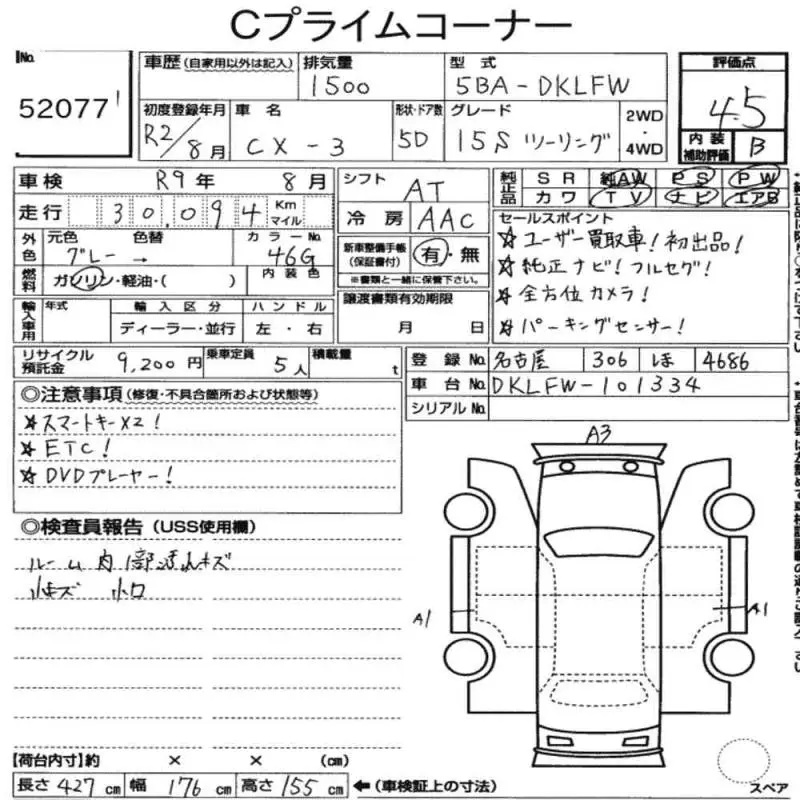 Cプライムコーナー
No.
52077 1
車歴 (自家用以外は記入)
排気量
1500
型式
5BA-DKLFW
評価点
4.5
内装補助評価 B
初度登録年月
R2/8月
車名
CX-3
形状・ドア数
5D
グレード
15S ツーリング
2WD・4WD
車検 R9年 8月
走行 30,094 Km マイル
シフト AT
冷房 AAC
純正品 SR 純AW PS PW
カワ TV ナビ エアB
外色 元色 色替 カラーNo.
グレー → 46G
燃料 ガソリン・軽油・( ) 内装色
新車整備手帳(保証書付) 有・無
※書類と一緒に保管下さい。
セールスポイント
☆ユーザー買取車!初出品!
☆純正ナビ!フルセグ!
☆全方位カメラ!
☆パーキングセンサー!
輸入車用 年式 輸入区分 ハンドル
ディーラー・並行 左・右
譲渡書類有効期限
月 日
リサイクル預託金 9,200円 乗車定員 5人 積載量 t
登録No. 名古屋 306 ほ 4686
車台No. DKLFW-101334
シリアルNo.
◎注意事項(修復・不具合箇所および状態等)
☆スマートキーX2!
☆ETC!
☆DVDプレーヤー!
◎検査員報告(USS使用欄)
ルーム内1部汚れキズ
小キズ 小凹
A3
A1
A1
【荷台内寸】約 × × (cm)
長さ 427 cm 幅 176 cm 高さ 155 cm ←(車検証上の寸法)
スペア